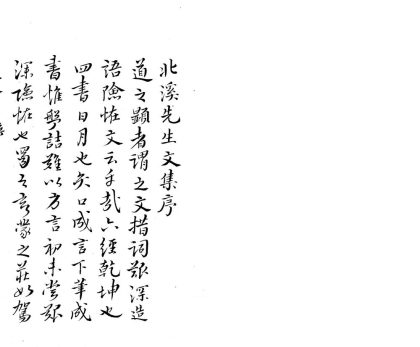 北溪先生文集序
道之顯者謂之文措詞艱深造
語險恠文云乎哉六經乾坤也
四書日月也矢口成言下筆成
書惟詰難以方言初未嘗艱
深險恠也蜀之蒙之莊駕